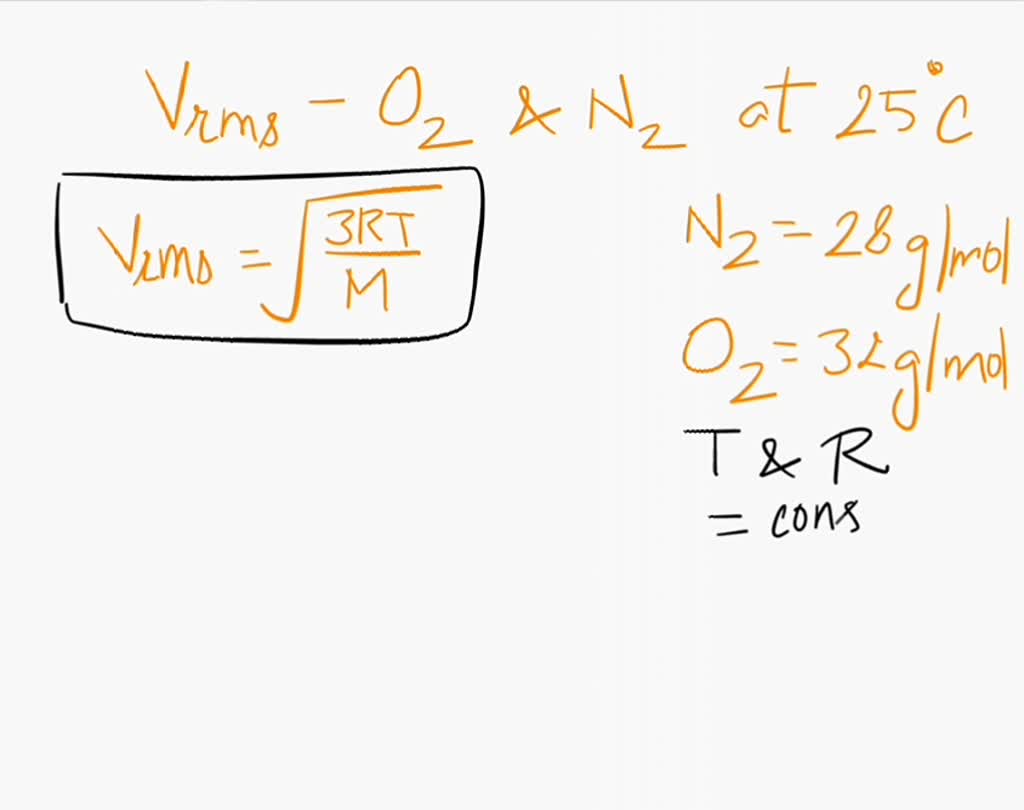 Vrms - O₂ & N₂ at 25°C
Vrms = √(3RT/M)
N₂ = 28 g/mol
O₂ = 32 g/mol
T & R
= cons